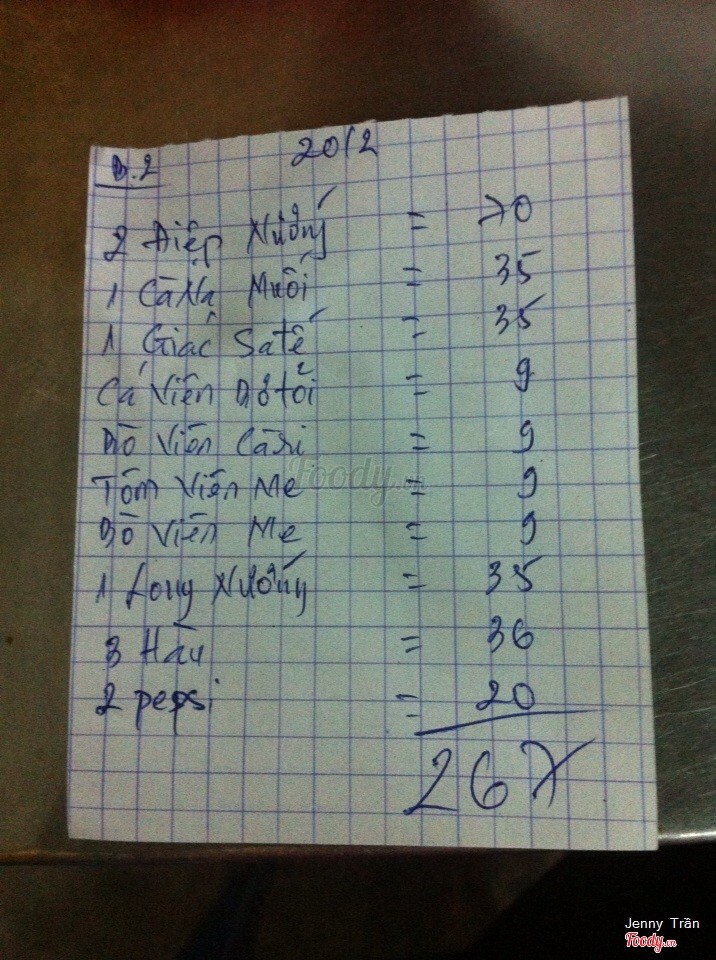 B.2
20/2
2 Điệp Nướng = 70
1 Cà Na Muối = 35
1 Giác Sa tế = 35
Cá Viên Bơ tỏi = 9
Bò Viên Cà Ri = 9
Tôm Viên Me = 9
Bò Viên Me = 9
1 Lông Nướng = 35
3 Hàu = 36
2 pepsi = 20
267
Foody.vn
Jenny Trần
Foody.vn